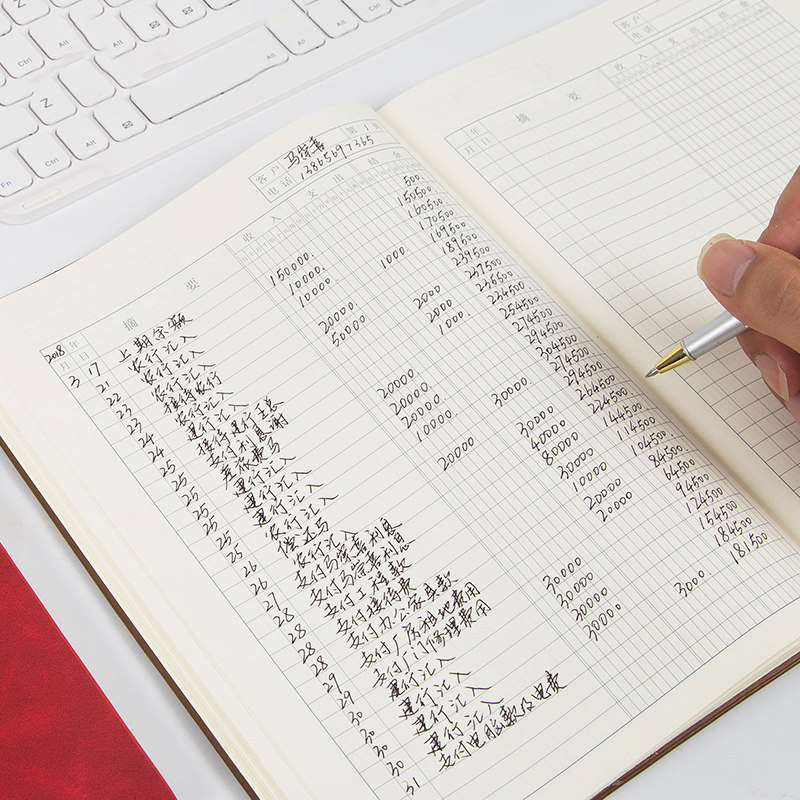 Ctrl
Alt
Alt
Ctrl
Z
Fn
Ctrl
Alt
Alt
客户 马荣喜 第 1 页
电话 13865697365
2018 年
月 日
摘 要
收 入
支 出
结 余
3 17
21
22
23
23
24
24
25
25
25
25
25
26
26
27
28
28
28
29
29
30
30
30
31
上期余额
农行汇入
农行汇入
接待农行
农行汇入
建行汇入
支付利息谢
差旅费马
建行汇入
建行汇入
农行汇入
偿还马
农行汇入
支付马荣喜利息
支付马荣喜利息
支付工程款
支付接待费
支付办公家具款
支付厂房租地费用
支付厂门修理费用
建行汇入
建行汇入
建行汇入
支付电脑款及电费
150000.
10000.
10000.
20000.
50000.
20000
20000
20000
10000
20000
30000
30000
30000
1000.
2000
2000
1000.
30000
30000
40000
80000
30000
10000
20000
20000
3000
500.
150500
160500
170500
169500
189500
239500
237500
235500
234500
254500
274500
294500
304500
274500
294500
264500
224500
144500
114500
104500
84500
64500
94500
124500
154500
184500
181500
客户
电话
年
月 日
摘 要
收 入
支 出
结 余